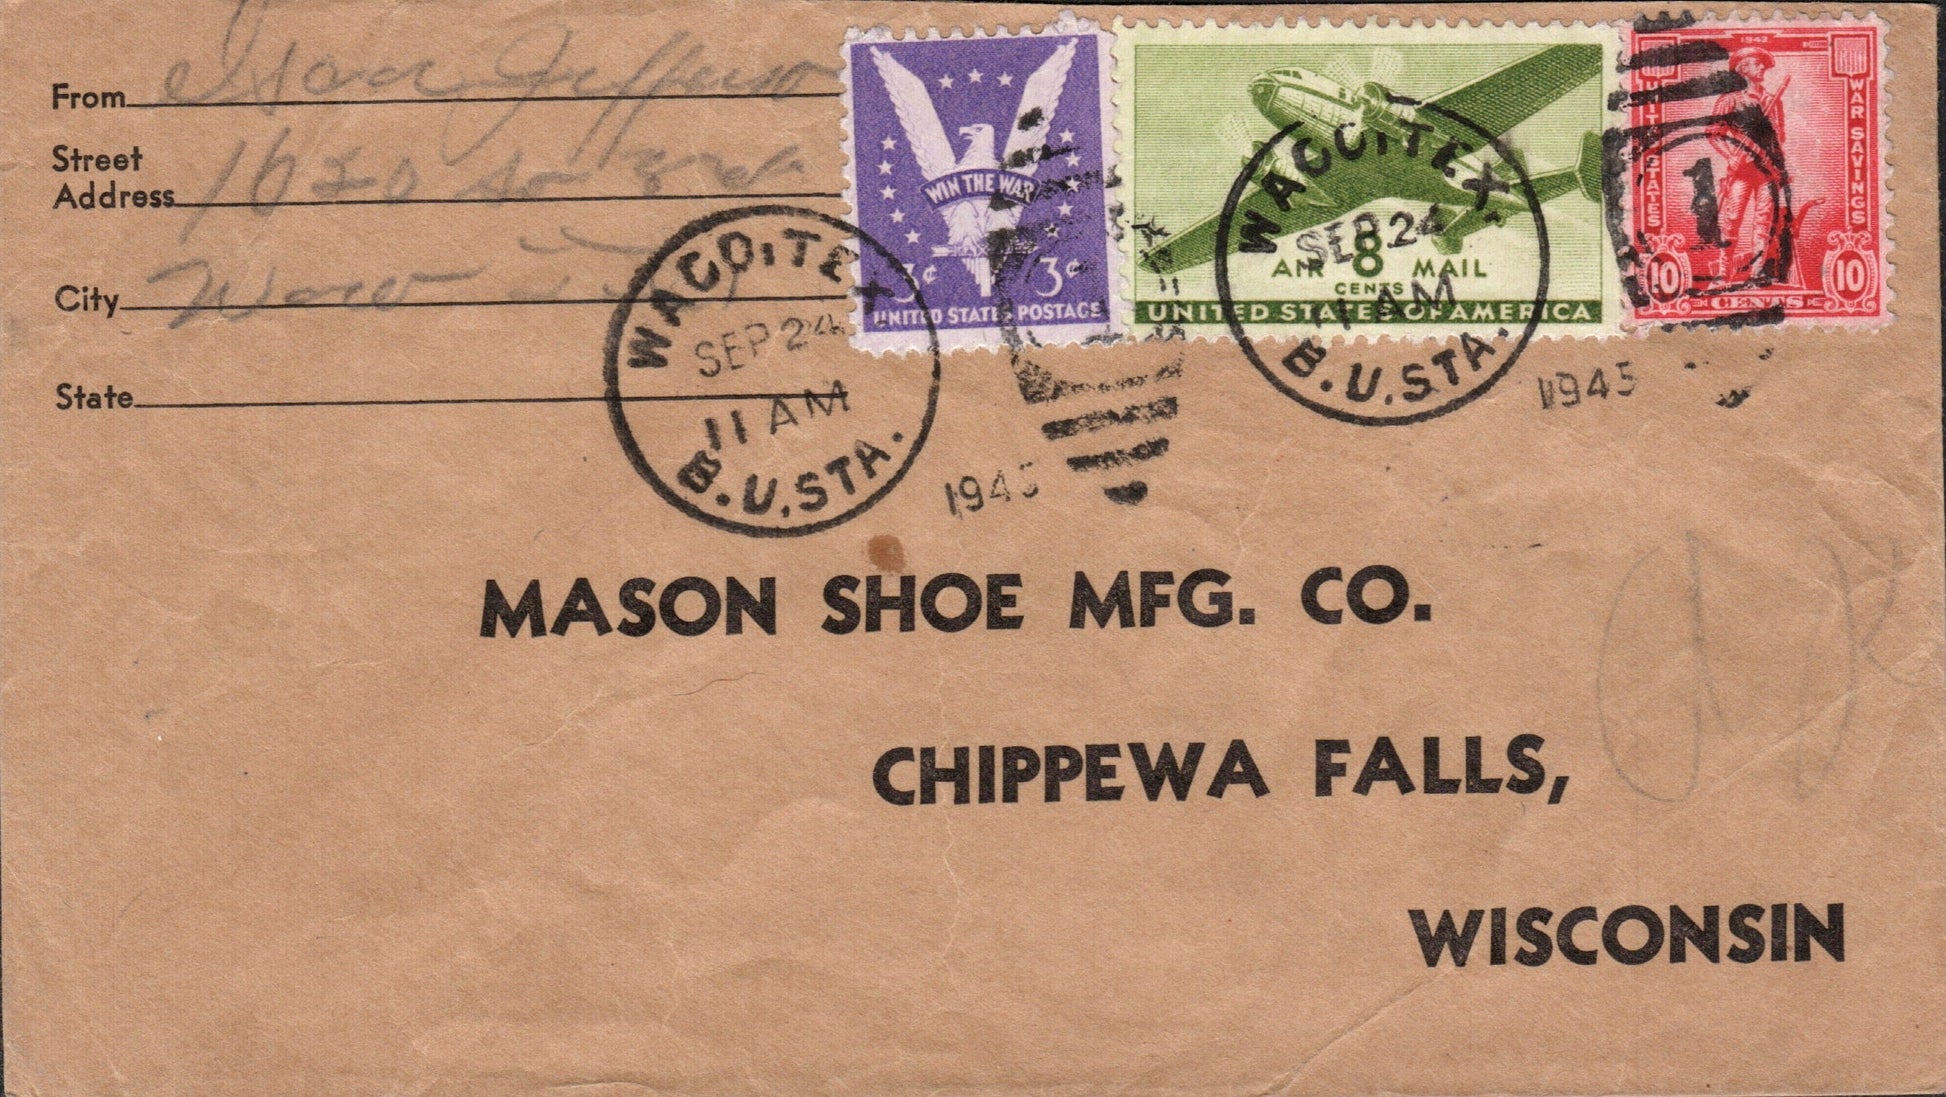 From Jefferso
Street
Address 1620 So 8th
City Waco Tex
State
WIN THE WAR
3¢ 3¢
UNITED STATES POSTAGE
AIR 8 MAIL
CENTS
UNITED STATES OF AMERICA
1942
UNITED STATES
WAR SAVINGS
10 CENTS 10
WACO, TEX.
SEP 24
11 AM
B.U. STA.
1945
WACO, TEX.
SEP 24
11 AM
B.U. STA.
1945
1
MASON SHOE MFG. CO.
CHIPPEWA FALLS,
WISCONSIN